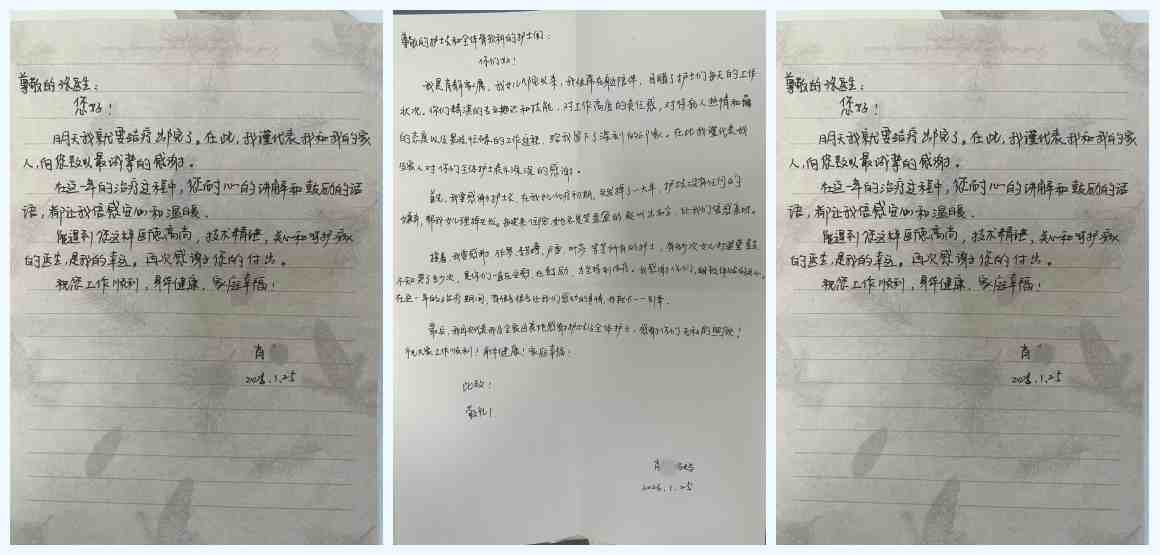 尊敬的张医生：
您好！
明天我就要结疗出院了。在此，我谨代表我和我的家
人，向您致以最诚挚的感谢。
在这一年的治疗过程中，您耐心的讲解和鼓励的话
语，都让我倍感安心和温暖。
能遇到您这样医德高尚，技术精进，关心和呵护病人
的医生，是我的幸运。再次感谢您的付出。
祝您工作顺利，身体健康，家庭幸福！
肖
2025.1.25
尊敬的护士长和全体骨软科的护士们：
你们好！
我是肖 家属，我女儿 以来，我 在身边陪伴，目睹了护士们每天的工作
状况。你们精湛的专业知识和技能，对工作高度的责任感，对待病人热情和
的态度以及 的工作流程，给我留下了深刻的印象。在此我谨代表我
家人对你们全体护士表示深深的感谢。
首先，我要感谢护士长，在我女儿化疗初期，
让我们倍感亲切。
接着，我要感谢 等所有的护士，有好多次女儿
不知哭了多少次，是你们一直在安慰，在鼓励，
在这一年的治疗期间，有很多很多让我们感动的事情，我就不一一列举。
最后，我再次代表我及全家 感谢护士长及全体护士，感谢你们无私的照顾！
祝大家工作顺利！身体健康！家庭幸福！
此致！
敬礼！
肖
2025.1.25
尊敬的张医生：
您好！
明天我就要结疗出院了。在此，我谨代表我和我的家
人，向您致以最诚挚的感谢。
在这一年的治疗过程中，您耐心的讲解和鼓励的话
语，都让我倍感安心和温暖。
能遇到您这样医德高尚，技术精进，关心和呵护病人
的医生，是我的幸运。再次感谢您的付出。
祝您工作顺利，身体健康，家庭幸福！
肖
2025.1.25